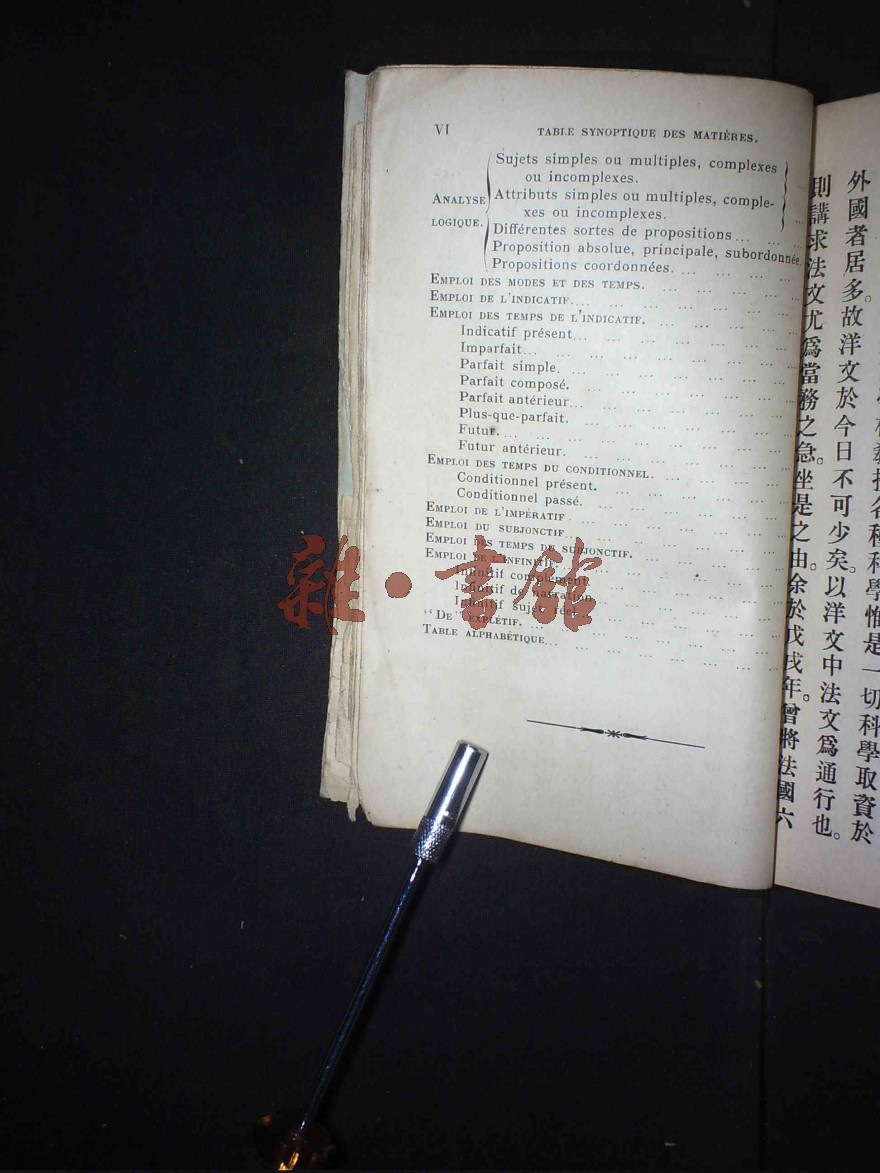 VI TABLE SYNOPTIQUE DES MATIÈRES.
Sujets simples ou multiples, complexes
ou incomplexes.
ANALYSE Attributs simples ou multiples, comple-
xes ou incomplexes.
LOGIQUE. Différentes sortes de propositions... ... ...
Proposition absolue, principale, subordonnée.
Propositions coordonnées. ... ... ...
EMPLOI DES MODES ET DES TEMPS. ... ... ... ...
EMPLOI DE L'INDICATIF.... ... ... ... ... ...
EMPLOI DES TEMPS DE L'INDICATIF. ... ... ... ...
Indicatif présent... ... ... ... ... ...
Imparfait... ... ... ... ... ... ...
Parfait simple. ... ... ... ... ... ...
Parfait composé. ... ... ... ... ... ...
Parfait antérieur... ... ... ... ... ...
Plus-que-parfait. ... ... ... ... ... ...
Futur.... ... ... ... ... ... ...
Futur antérieur. ... ... ... ... ... ...
EMPLOI DES TEMPS DU CONDITIONNEL. ... ... ... ...
Conditionnel présent. ... ... ... ... ...
Conditionnel passé. ... ... ... ... ...
EMPLOI DE L'IMPÉRATIF ... ... ... ... ... ...
EMPLOI DU SUBJONCTIF... ... ... ... ... ...
EMPLOI DES TEMPS DU SUBJONCTIF. ... ... ... ...
EMPLOI DE L'INFINITIF. ... ... ... ... ...
Infinitif complément. ... ... ... ... ...
Infinitif de narration... ... ... ... ...
Infinitif sujet réel... ... ... ... ...
"DE" EXPLÉTIF. ... ... ... ... ... ...
TABLE ALPHABÉTIQUE... ... ... ... ... ... ...
雜·書館
種科學惟是一切科學取資於
外國者居多。故洋文於今日不可少矣。以洋文中法文爲通行也。
則講求法文尤爲當務之急。坐是之由。余於戊戌年。曾將法國六